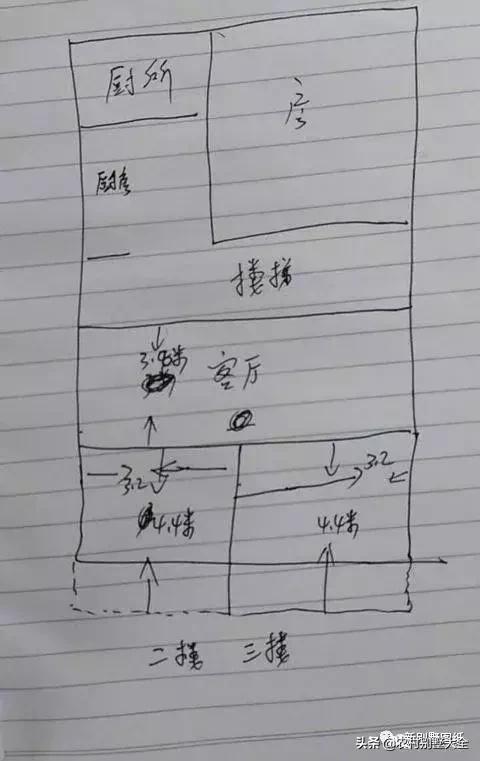 厨所
房
厨房
楼梯
3.8米
客厅
3.2
3.2
4.4米
4.4米
二楼 三楼
新别墅图纸
头条@农村别墅大全